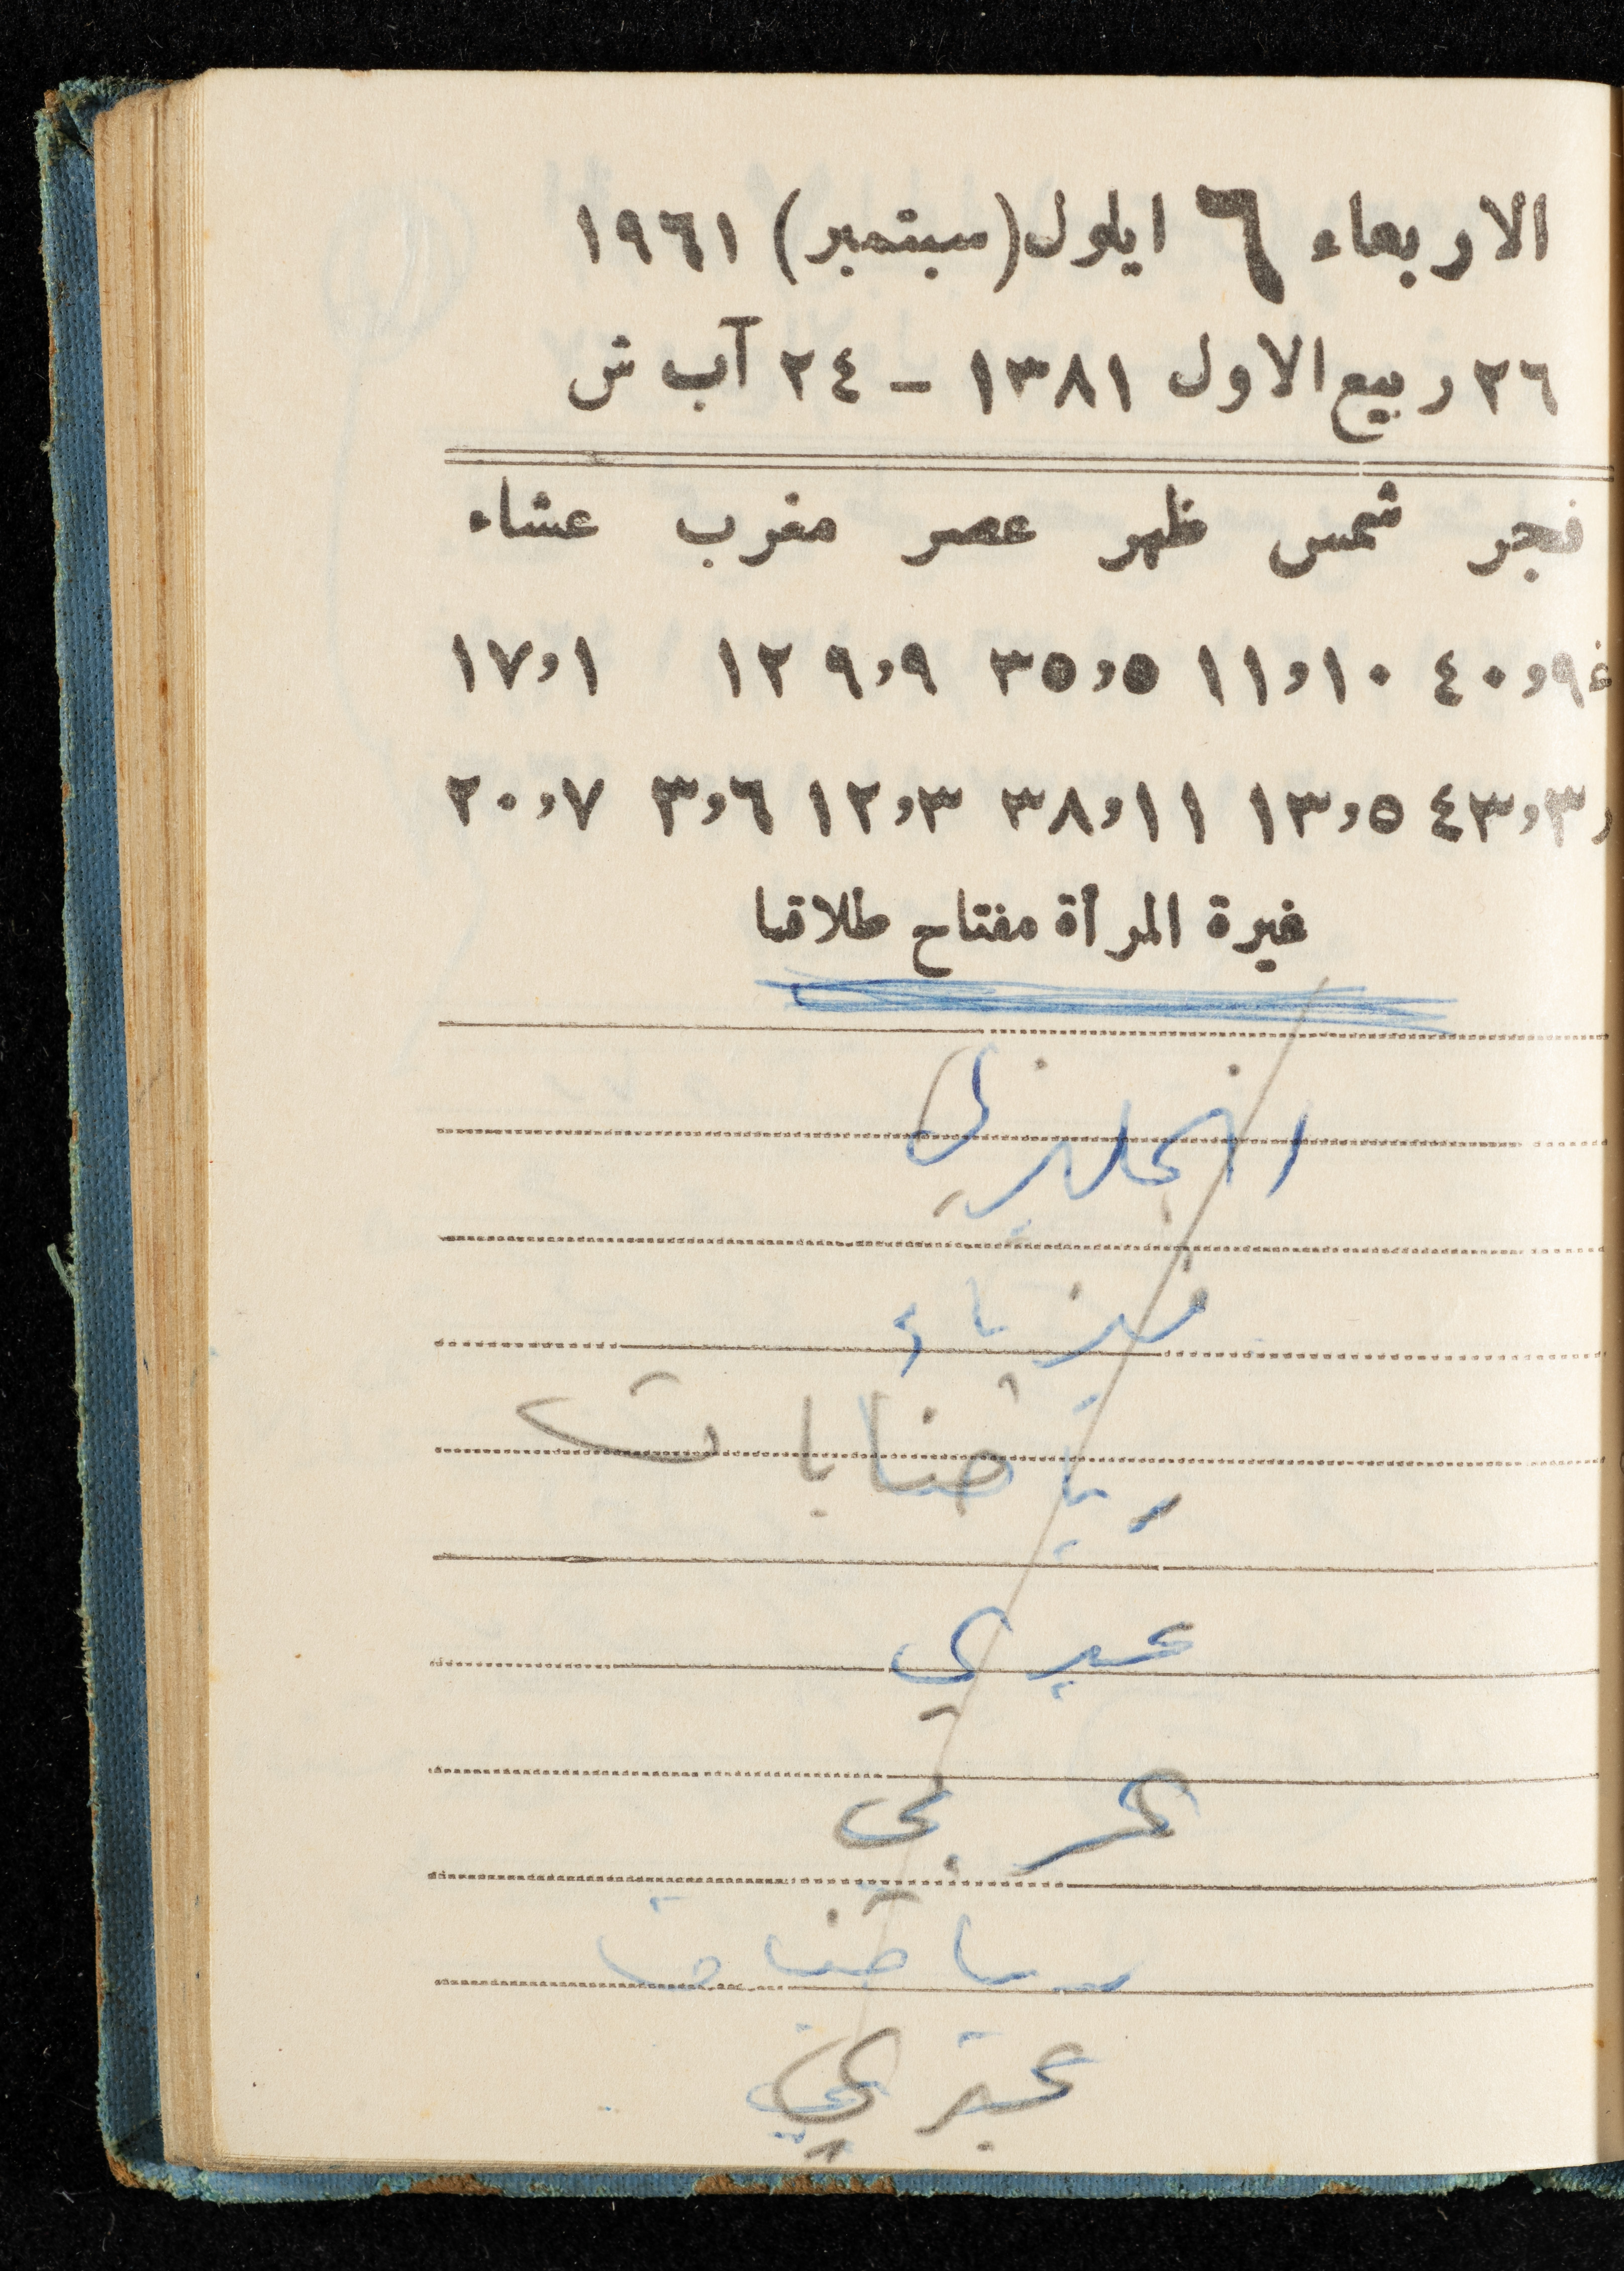 الاربعاء ٦ ايلول (سبتمبر) ١٩٦١
٢٦ ربيع الاول ١٣٨١ – ٢٤ آب ش
فجر شمس ظهر عصر مغرب عشاء
غ ٤٠،٩ ١١،١٠ ٣٥،٥ ٩،٩ ١٢ ١٧،١
ز ٤٣،٣ ١٣،٥ ٣٨،١١ ١٢،٣ ٣،٦ ٢٠،٧
غيرة المرأة مفتاح طلاقها
انجليزي
فيزياء
عبري
عربي
عبري